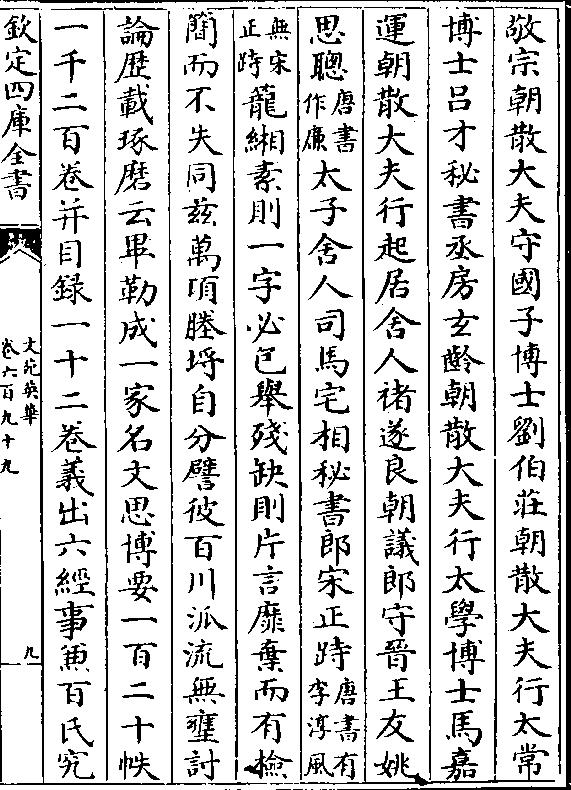 敬宗朝散大夫守國子博士劉伯莊朝散大夫行太常
博士吕才秘書丞房玄齡朝散大夫行太學博士馬嘉
運朝散大夫行起居舍人褚遂良朝議郎守晉王友姚
思聰唐書作廉太子舍人司馬宅相秘書郎宋正跱唐書有李淳風
無宋正跱籠緗素則一字必包舉殘缺則片言靡棄而有檢
簡而不失同兹萬頃塍埒自分譬彼百川派流無壅討
論歴載琢磨云畢勒成一家名文思博要一百二十帙
一千二百卷并目録一十二卷義出六經事兼百氏究
欽定四庫全書
文苑英華
卷六百九十九
九